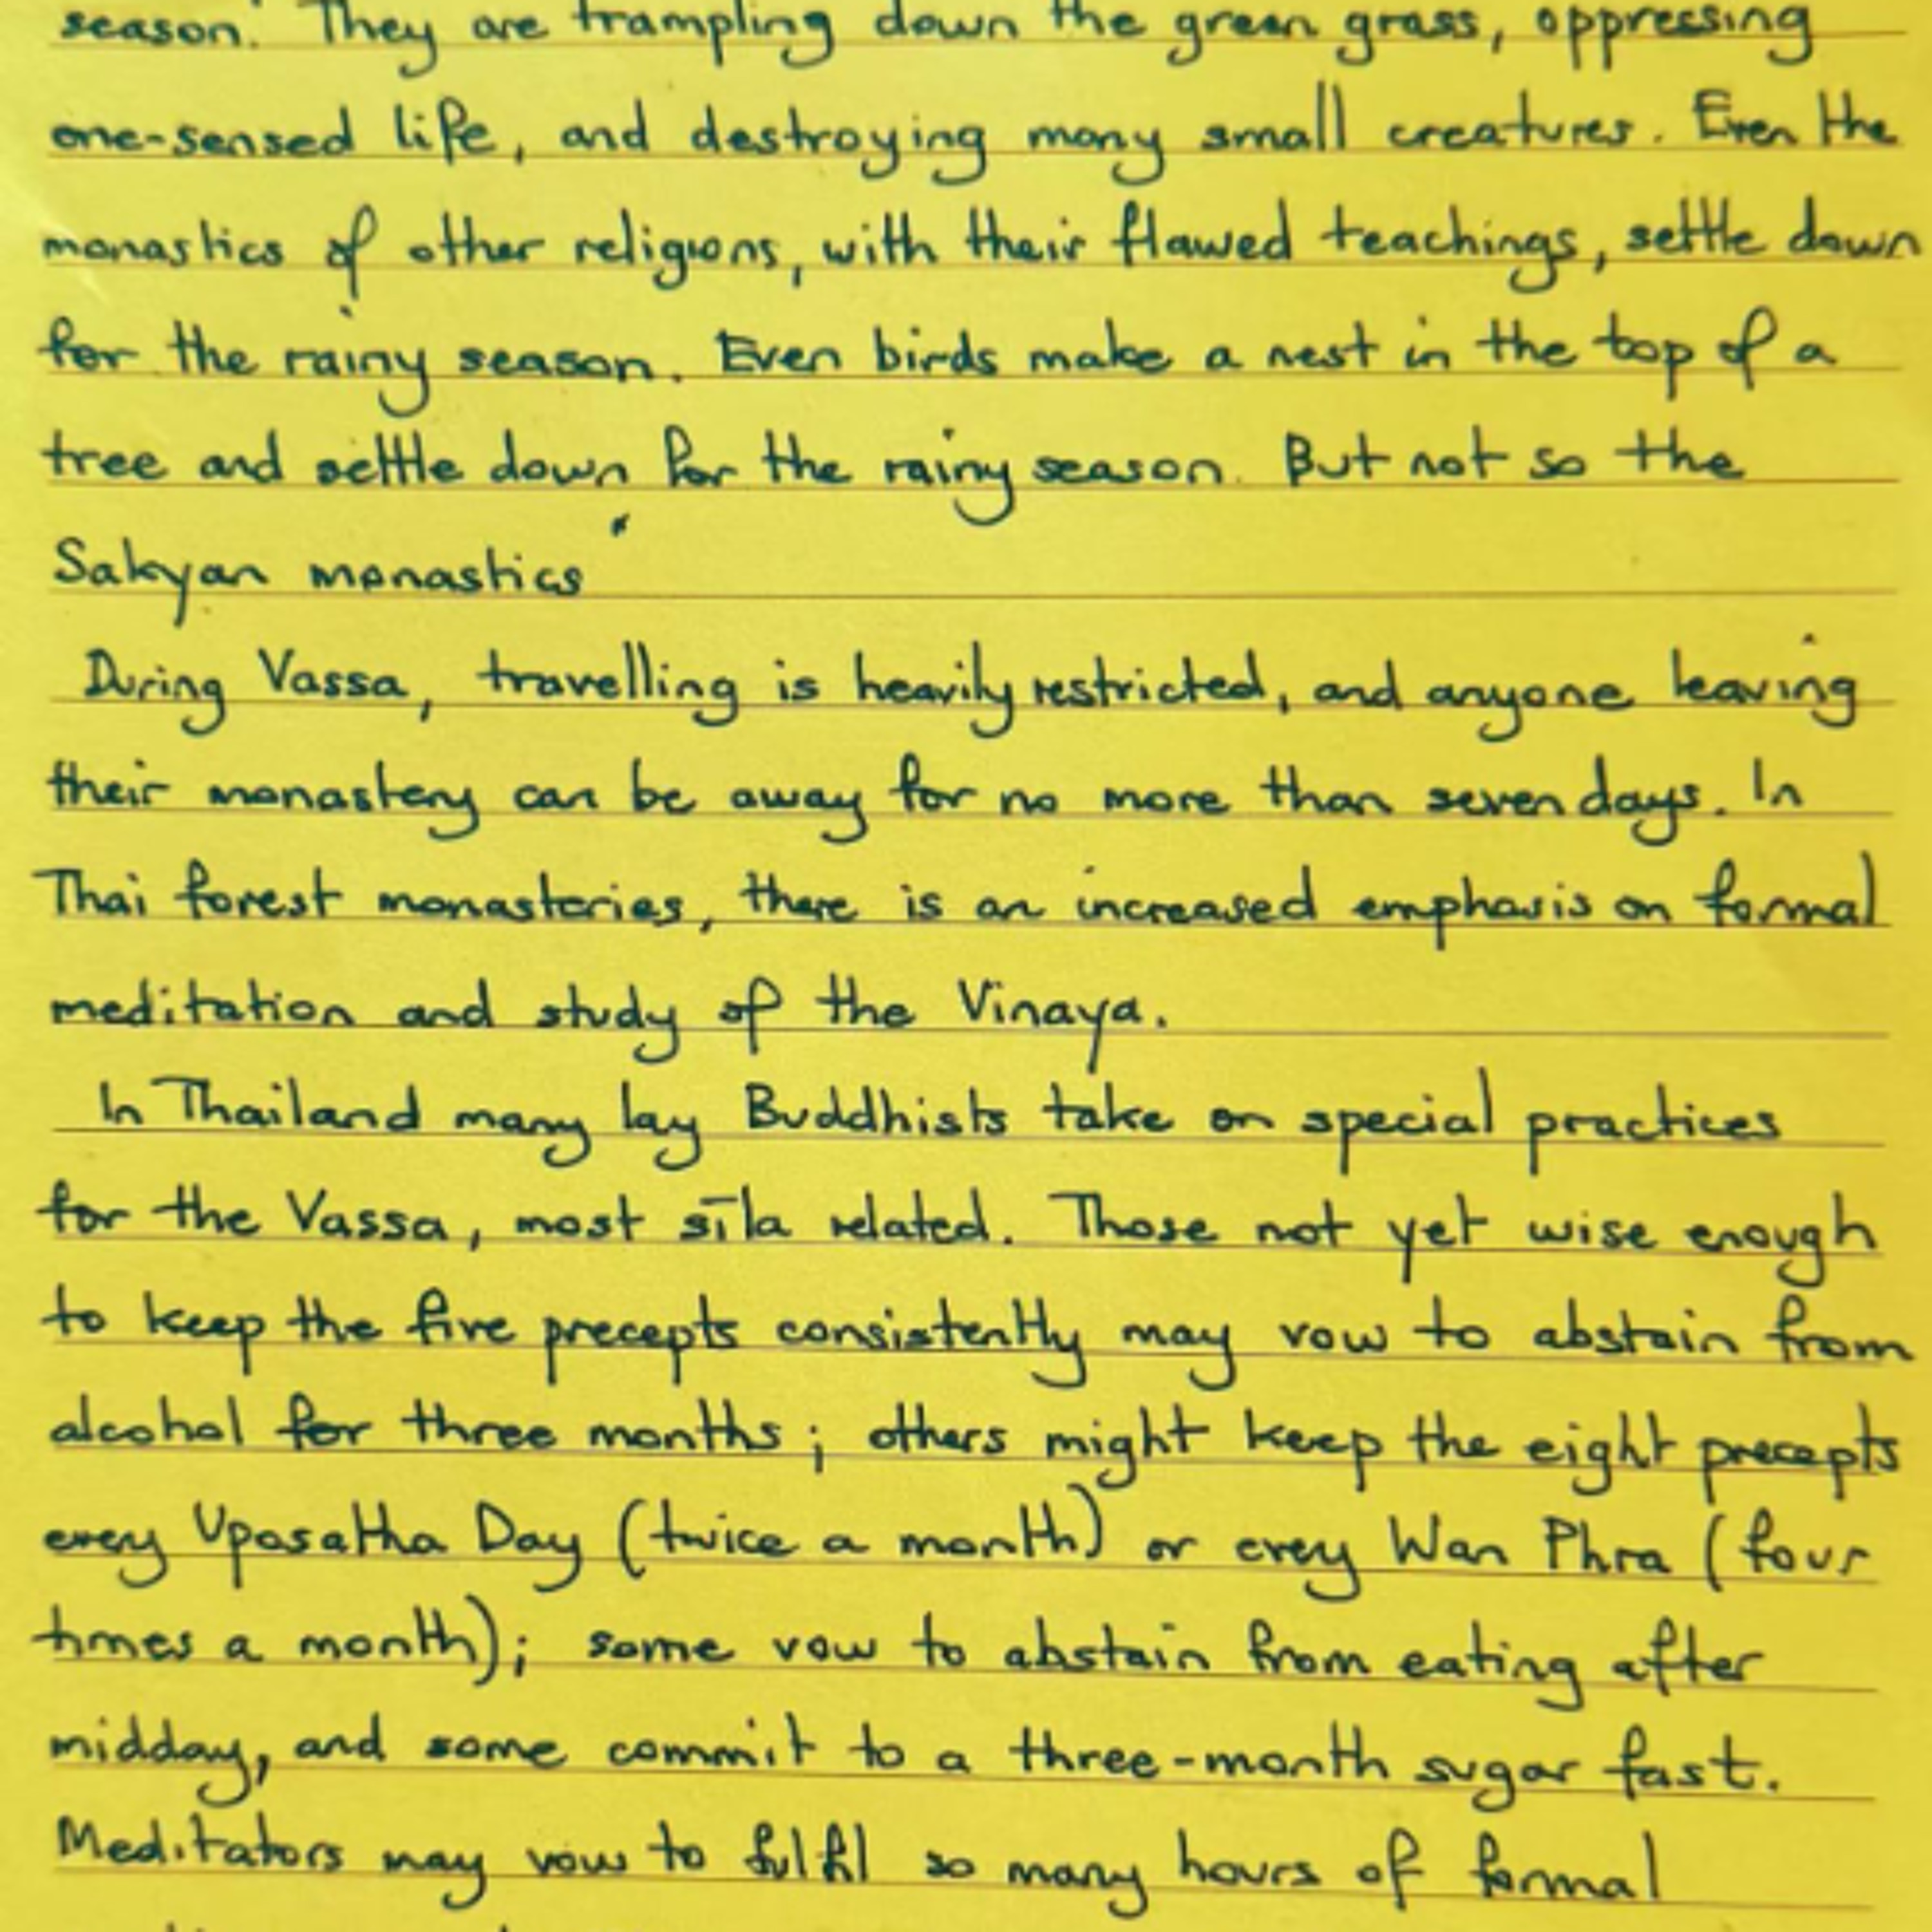 season. They are trampling down the green grass, oppressing
one-sensed life, and destroying many small creatures. Even the
monastics of other religions, with their flawed teachings, settle down
for the rainy season. Even birds make a nest in the top of a
tree and settle down for the rainy season. But not so the
Sakyan monastics"
During Vassa, travelling is heavily restricted, and anyone leaving
their monastery can be away for no more than seven days. In
Thai forest monasteries, there is an increased emphasis on formal
meditation and study of the Vinaya.
In Thailand many lay Buddhists take on special practices
for the Vassa, most sīla related. Those not yet wise enough
to keep the five precepts consistently may vow to abstain from
alcohol for three months; others might keep the eight precepts
every Uposatha Day (twice a month) or every Wan Phra (four
times a month); some vow to abstain from eating after
midday, and some commit to a three-month sugar fast.
Meditators may vow to fulfil so many hours of formal